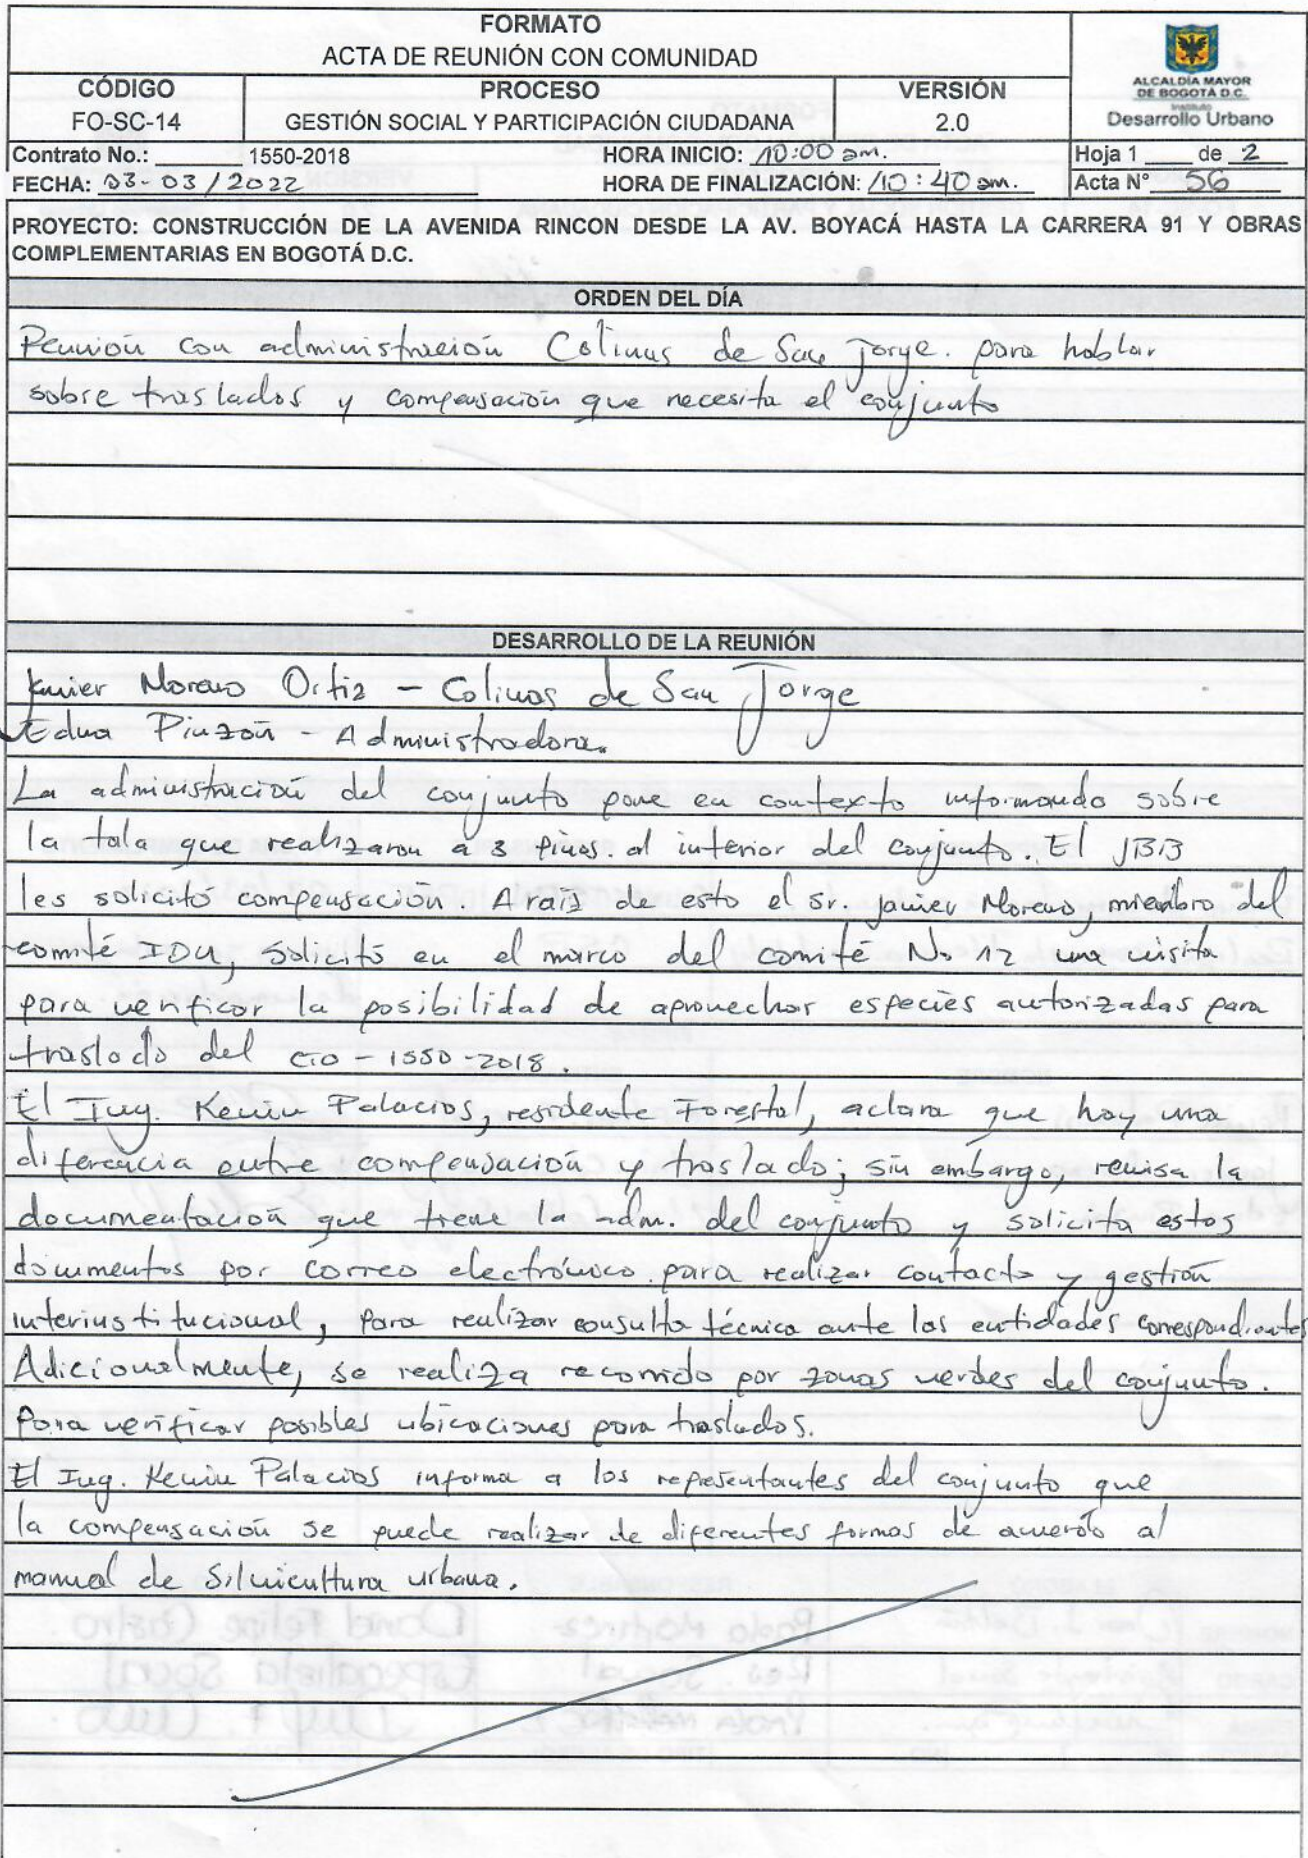 FORMATO
ACTA DE REUNIÓN CON COMUNIDAD
CÓDIGO
FO-SC-14
PROCESO
GESTIÓN SOCIAL Y PARTICIPACIÓN CIUDADANA
VERSIÓN
2.0
ALCALDÍA MAYOR
DE BOGOTÁ D.C.
Instituto
Desarrollo Urbano
Contrato No.: 1550-2018 HORA INICIO: 10:00 am. Hoja 1 de 2
FECHA: 03-03/2022 HORA DE FINALIZACIÓN: 10:40 am. Acta N° 56
PROYECTO: CONSTRUCCIÓN DE LA AVENIDA RINCON DESDE LA AV. BOYACÁ HASTA LA CARRERA 91 Y OBRAS
COMPLEMENTARIAS EN BOGOTÁ D.C.
ORDEN DEL DÍA
Reunión con administración Colinas de San Jorge. para hablar
sobre traslados y compensación que necesita el conjunto
DESARROLLO DE LA REUNIÓN
Javier Moreno Ortiz - Colinas de San Jorge
Edna Pinzón - Administradora.
La administración del conjunto pone en contexto informando sobre
la tala que realizaron a 3 pinos. al interior del conjunto. El JBB
les solicitó compensación. A raíz de esto el sr. Javier Moreno, miembro del
comité IDU, solicitó en el marco del comité No 12 una visita
para verificar la posibilidad de aprovechar especies autorizadas para
traslado del CTO - 1550-2018.
El Ing. Kevin Palacios, residente Forestal, aclara que hay una
diferencia entre compensación y traslado; sin embargo, revisa la
documentación que tiene la adm. del conjunto y solicita estos
documentos por correo electrónico. para realizar contacto y gestión
interinstitucional, para realizar consulta técnica ante las entidades correspondientes
Adicionalmente, se realiza recorrido por zonas verdes del conjunto.
Para verificar posibles ubicaciones para traslados.
El Ing. Kevin Palacios informa a los representantes del conjunto que
la compensación se puede realizar de diferentes formas de acuerdo al
manual de Silvicultura urbana.